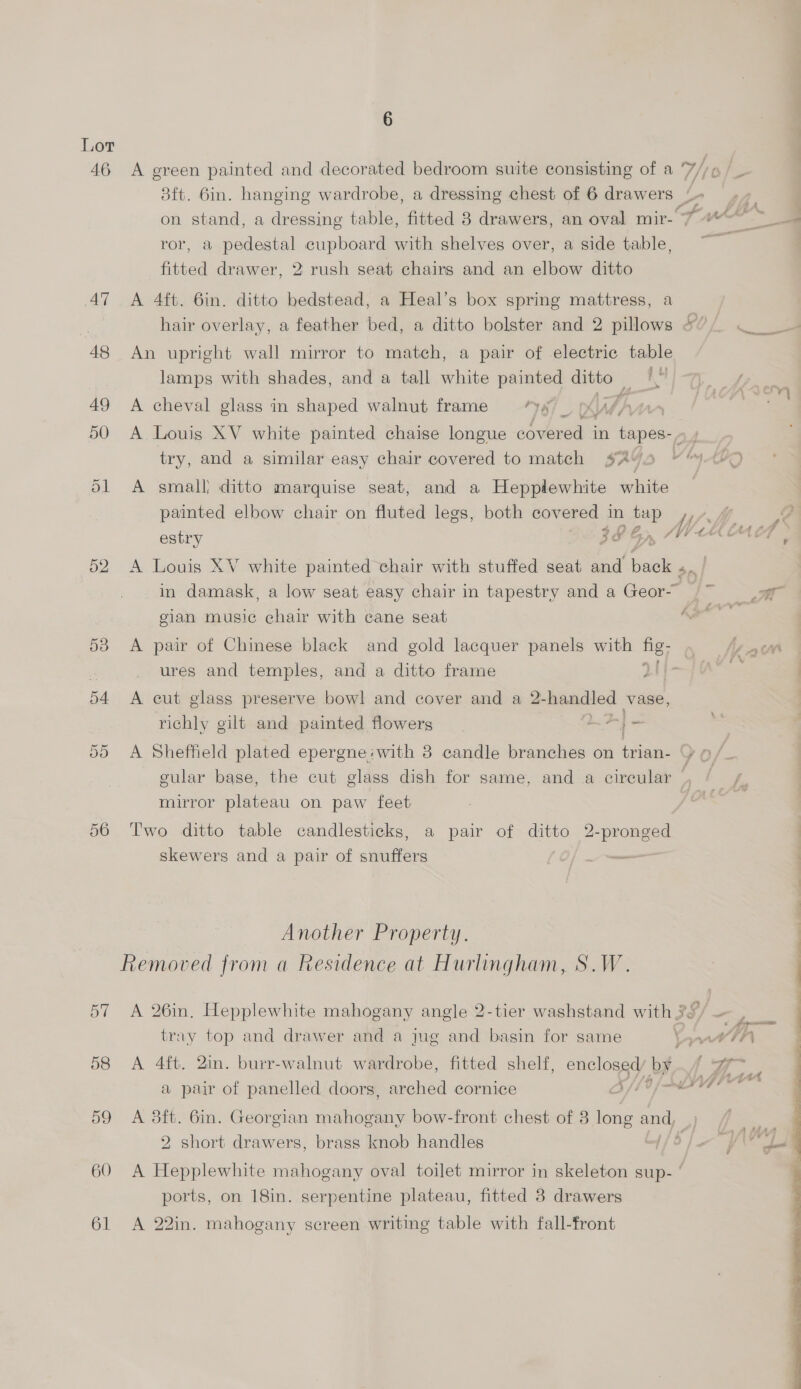 6
Lot
46 A green painted and decorated bedroom suite consisting of a
3ft. 6in. hanging wardrobe, a dressing chest of 6 drawers
on stand, a dressing table, fitted 3 drawers, an oval mir-
ror, a pedestal cupboard with shelves over, a side table,
fitted drawer, 2 rush seat chairs and an elbow ditto
47 A 4ft. 6in. ditto bedstead, a Heal's box spring mattress, a
hair overlay, a feather bed, a ditto bolster and 2 pillows
48 An upright wall mirror to match, a pair of electric table
lamps with shades, and a tall white painted ditto
49 A cheval glass in shaped walnut frame
50 A Louis XV white painted chaise longue covered in tapes-
try, and a similar easy chair covered to match
51 A small ditto marquise seat, and a Hepplewhite white
painted elbow chair on fluted legs, both covered in tap
estry
52 A Louis XV white painted chair with stuffed seat and back
in damask, a low seat easy chair in tapestry and a Geor-
gian music chair with cane seat
53 A pair of Chinese black and gold lacquer panels with fig-
ures and temples, and a ditto frame
54 A cut glass preserve bowl and cover and a 2-handled vase,
richly gilt and painted flowers
55 A Sheffield plated epergne with 3 candle branches on trian-
gular base, the cut glass dish for same, and a circular
mirror plateau on paw feet
56 Two ditto table candlesticks, a pair of ditto 2-pronged
skewers and a pair of snuffers
Another Property.
Removed from a Residence at Hurlingham, S.W.
57 A 26in. Hepplewhite mahogany angle 2-tier washstand with
tray top and drawer and a jug and basin for same
58 A 4ft. 2in. burr-walnut wardrobe, fitted shelf, enclosed by
a pair of panelled doors, arched cornice
59 A 3ft. 6in. Georgian mahogany bow-front chest of 3 long and
2 short drawers, brass knob handles
60 A Hepplewhite mahogany oval toilet mirror in skeleton sup-
ports, on 18in. serpentine plateau, fitted 3 drawers
61 A 22in. mahogany screen writing table with fall-front